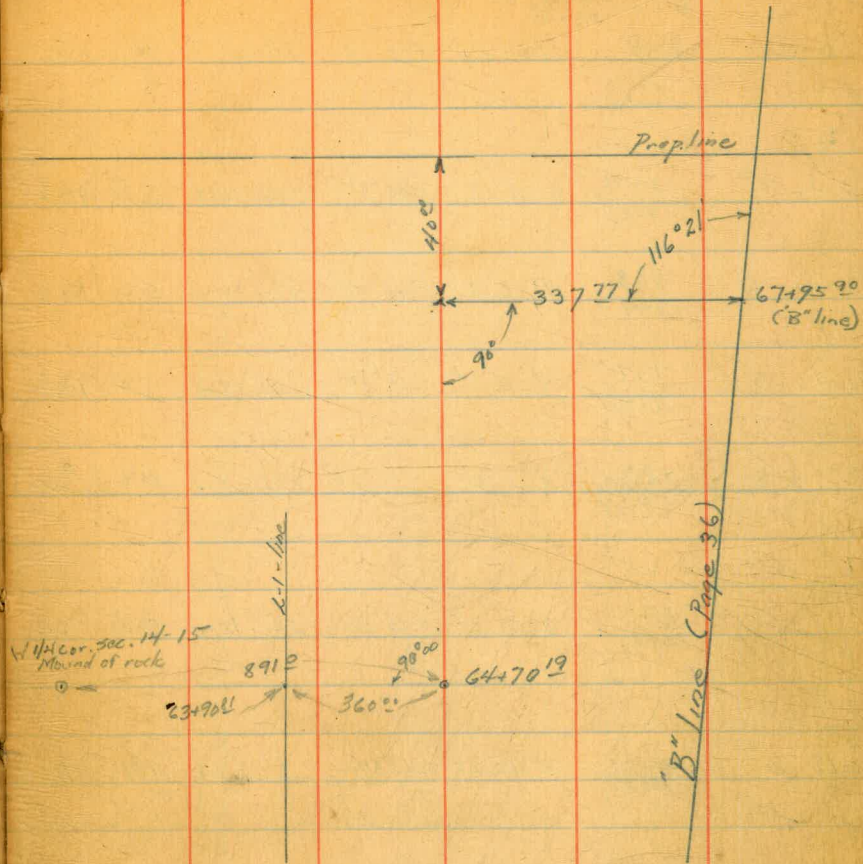 Prop. line
40ºº
116°21'
337 77
67+95 90
("B" line)
90°
L-1-line
"B" line (Page 36)
1/4 cor. sec. 14-15
Mound of rock
891º
90°00
64+70 19
63+90
360ºº